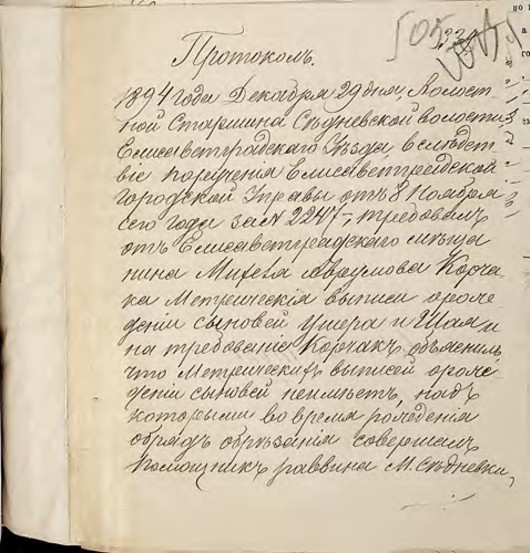 505
Протоколъ.
1894 года Декабря 29 дня, Волост
ной Старшина Сѣдневской волости,
Елисаветградскаго уѣзда, вслѣдст
віе порученія Елисаветградской
городской Управы отъ 8 Ноября
сего года за № 2247, требовалъ
отъ Елисаветградскаго мѣща
нина Михеля Аврумова Корча
ка Метрическія выписи о рож
деніи сыновей Ушера и Шая и
на требованіе Корчакъ объяснилъ
что Метрическихъ выписей о рож
деніи сыновей неимѣетъ, надъ
которыми во время рожденія
обрядъ обрѣзанія совершалъ
помощникъ раввина М. Сѣдневки,